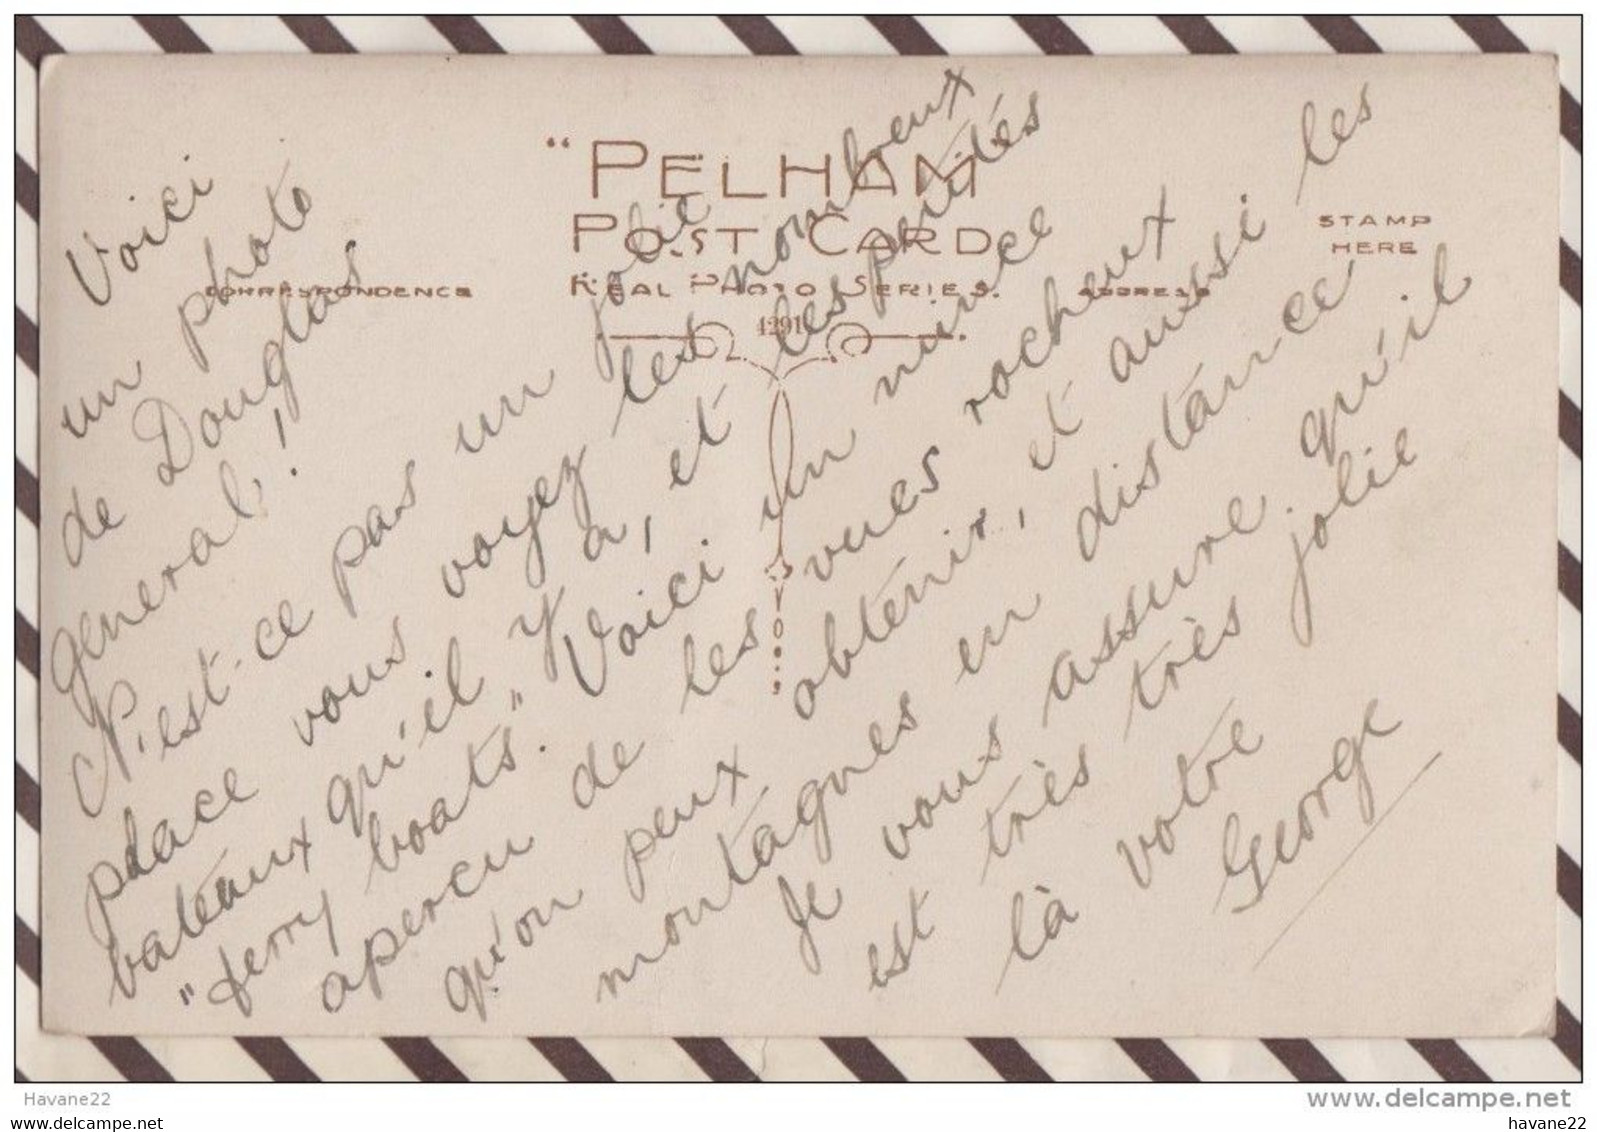 "PELHAM"
POST CARD
REAL PHOTO SERIES.
CORRESPONDENCE
ADDRESS
STAMP
HERE
4291
Voici
un photo
de Douglas
general!
N'est-ce pas un jolie
place vous voyez les nombreux
bateaux qu'il y a, et les petités
"ferry boats". Voici un mince
apercu de les vues rocheux
qu'on peux obtenir, et aussi les
montagnes en distance
Je vous assure qu'il
est très très jolie
là votre
George
Havane22
www.delcampe.net
havane22
havane22